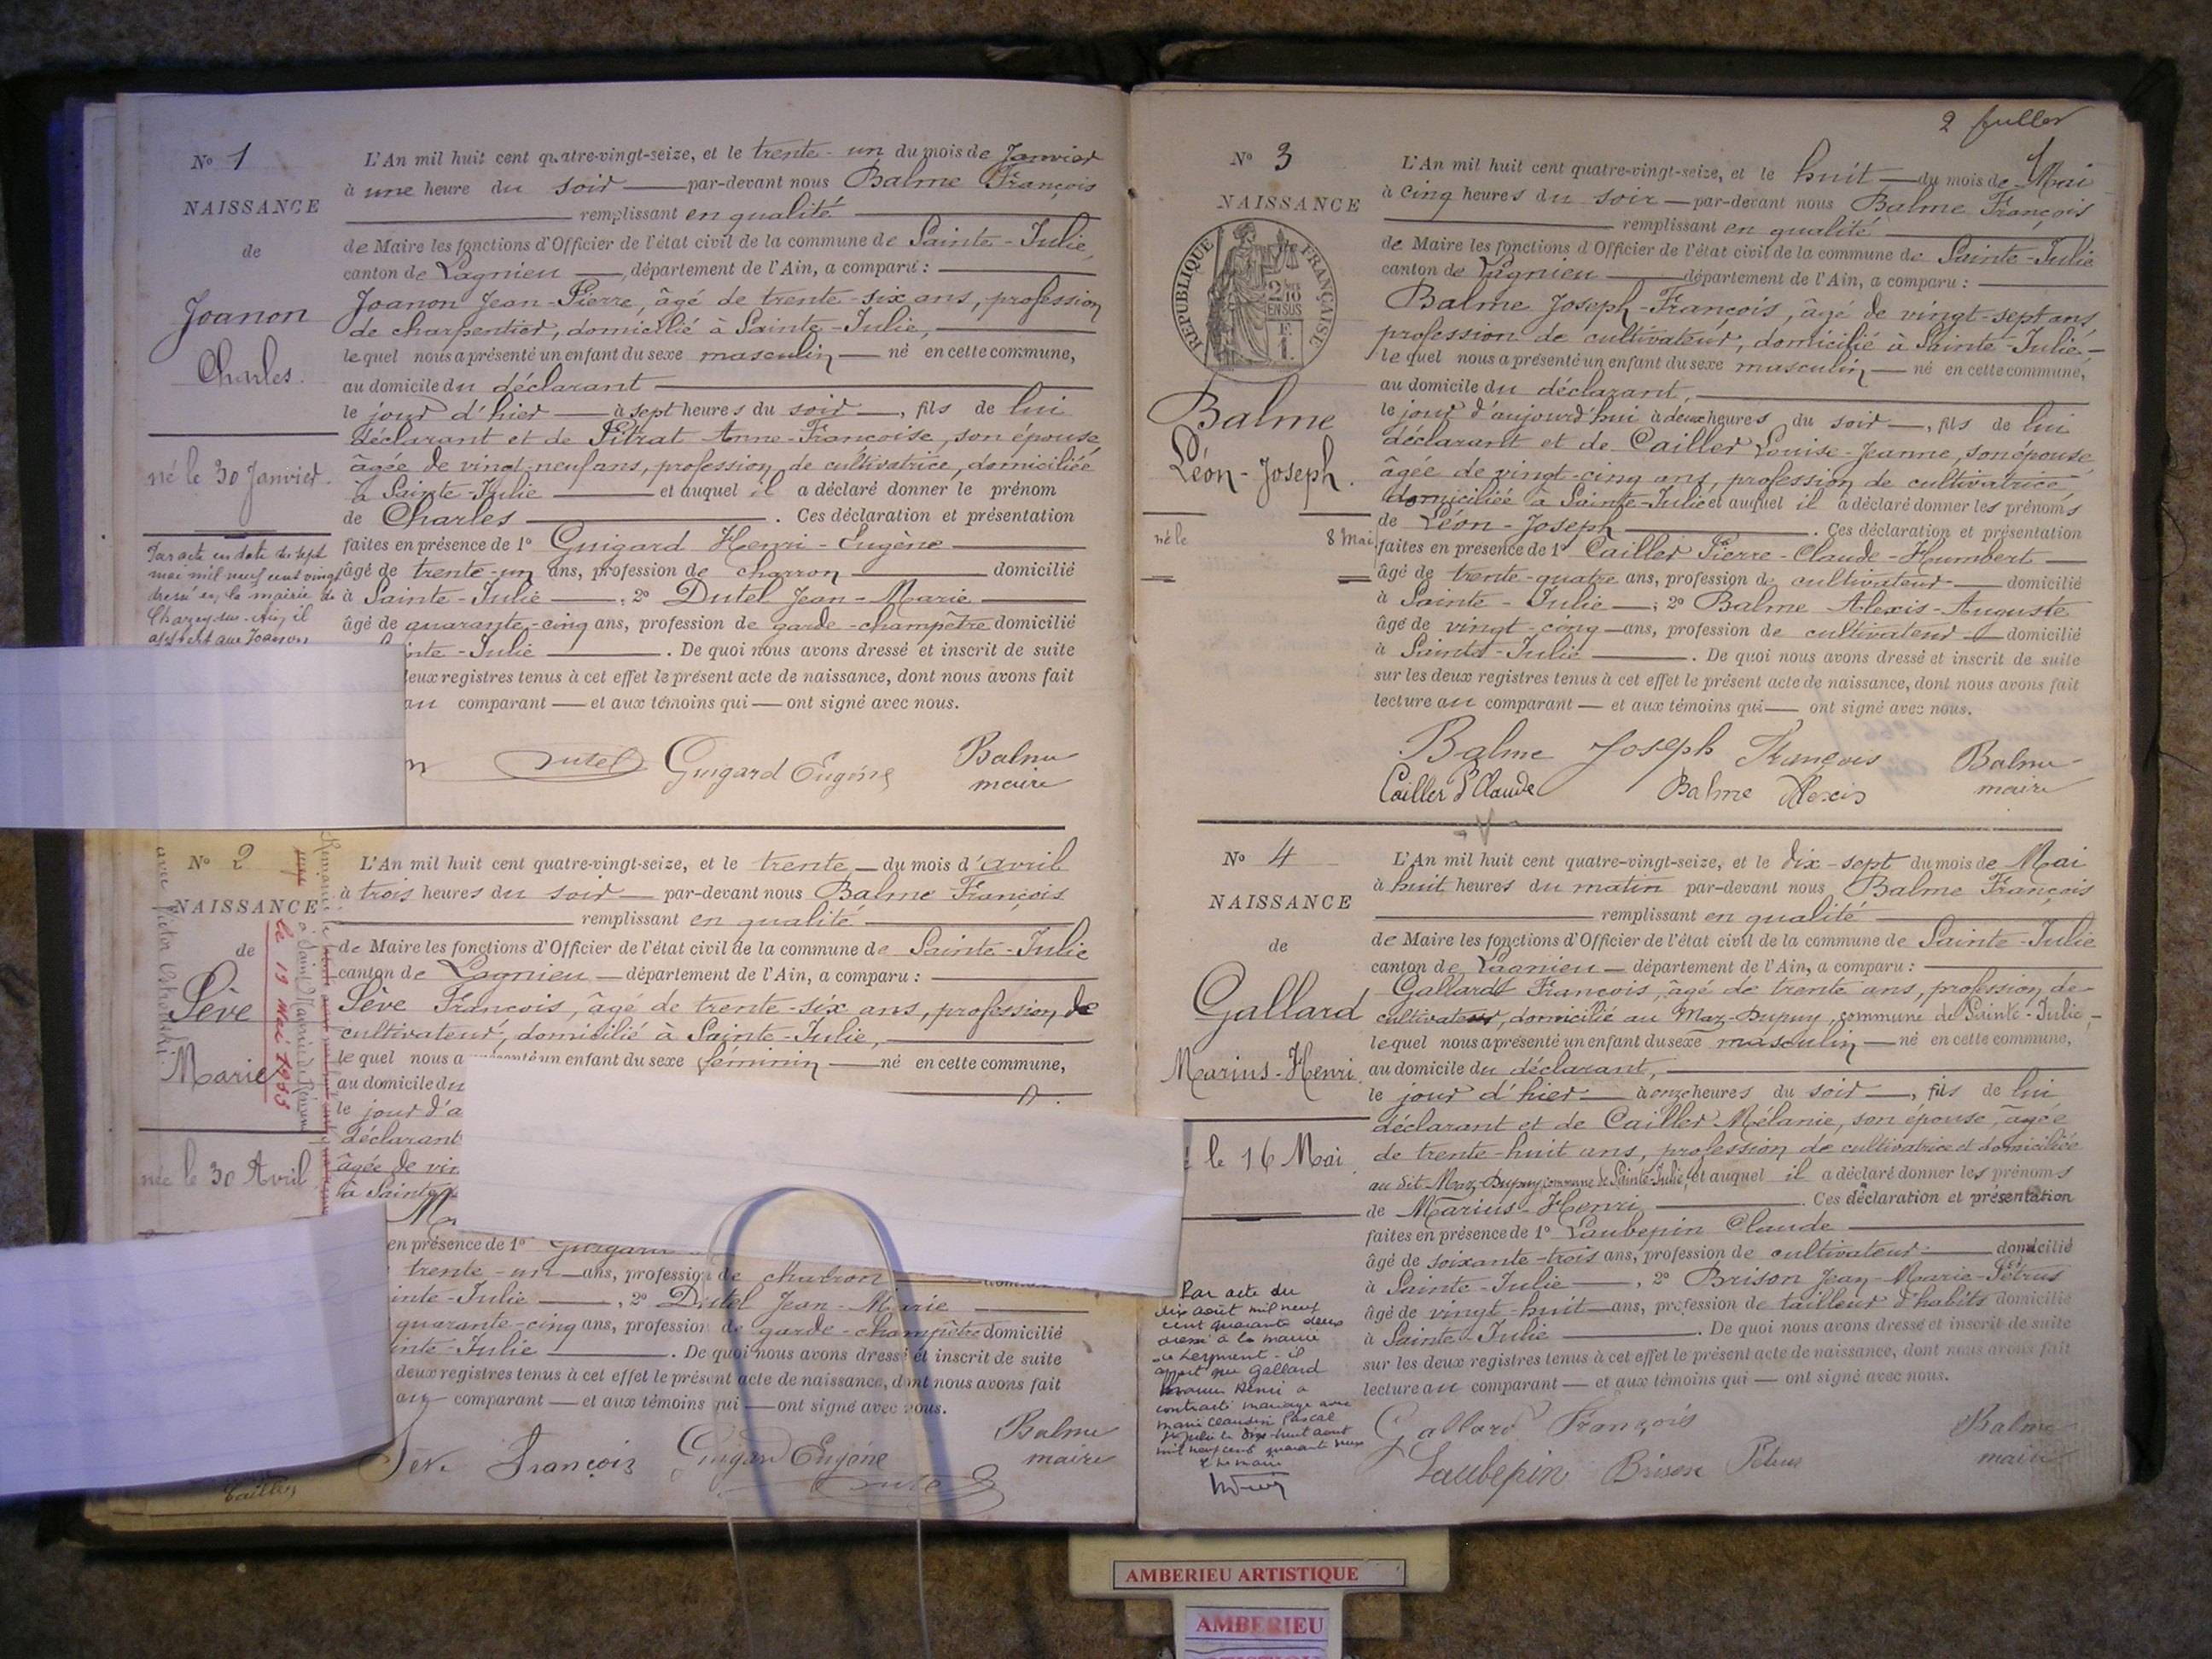 Nº 1
NAISSANCE
de
Joanon
Charles.
né le 30 Janvier.
Par acte en date du sept
mai mil neuf cent vingt
dressé en la mairie de
Chazey-sur-Ain, il
appert que Joanon
L'An mil huit cent quatre-vingt-seize, et le trente-un du mois de Janvier
à une heure du soir — par-devant nous Balme François
remplissant en qualité
de Maire les fonctions d'Officier de l'état civil de la commune de Sainte-Julie,
canton de Lagnieu —, département de l'Ain, a comparu :
Joanon Jean-Pierre, âgé de trente-six ans, profession
de charpentier, domicilié à Sainte-Julie,
lequel nous a présenté un enfant du sexe masculin — né en cette commune,
au domicile du déclarant
le jour d'hier — à sept heures du soir —, fils de lui
déclarant et de Pitrat Anne-Françoise, son épouse,
âgée de vingt-neuf ans, profession de cultivatrice, domiciliée
à Sainte-Julie — et auquel il a déclaré donner le prénom
de Charles — . Ces déclaration et présentation
faites en présence de 1º Guigard Henri-Eugène
âgé de trente-un ans, profession de charron — domicilié
à Sainte-Julie —, 2º Dutel Jean-Marie
âgé de quarante-cinq ans, profession de garde-champêtre domicilié
inte-Julie — . De quoi nous avons dressé et inscrit de suite
deux registres tenus à cet effet le présent acte de naissance, dont nous avons fait
au comparant — et aux témoins qui — ont signé avec nous.
n Dutel Guigard Eugène Balme
maire
Nº 2
NAISSANCE
de
Sève
Marie
le 19 Mai 1965
née le 30 Avril
L'An mil huit cent quatre-vingt-seize, et le trente — du mois d'avril
à trois heures du soir — par-devant nous Balme François
remplissant en qualité
de Maire les fonctions d'Officier de l'état civil de la commune de Sainte-Julie
canton de Lagnieu — département de l'Ain, a comparu :
Sève François, âgé de trente-six ans, profession de
cultivateur, domicilié à Sainte-Julie,
lequel nous a présenté un enfant du sexe féminin — né en cette commune,
au domicile du
le jour d'a
déclarant
âgée de vin
à Sainte
Ma
en présence de 1º Guigard
trente-un — ans, profession de charron
inte-Julie —, 2º Dutel Jean-Marie
quarante-cinq ans, profession de garde-champêtre domicilié
inte-Julie — . De quoi nous avons dressé et inscrit de suite
deux registres tenus à cet effet le présent acte de naissance, dont nous avons fait
au comparant — et aux témoins qui — ont signé avec nous.
Sève François Guigard Eugène Balme
maire
Dutel
2 fuller
Nº 3
NAISSANCE
RÉPUBLIQUE FRANÇAISE
2/10 EN SUS
Balme
Léon-Joseph.
né le 8 Mai
L'An mil huit cent quatre-vingt-seize, et le huit — du mois de Mai
à cinq heures du soir — par-devant nous Balme François
remplissant en qualité
de Maire les fonctions d'Officier de l'état civil de la commune de Sainte-Julie
canton de Lagnieu — département de l'Ain, a comparu :
Balme Joseph-François, âgé de vingt-sept ans,
profession de cultivateur, domicilié à Sainte-Julie,—
lequel nous a présenté un enfant du sexe masculin — né en cette commune,
au domicile du déclarant,
le jour d'aujourd'hui à deux heures du soir —, fils de lui
déclarant et de Cailler Louise-Jeanne, son épouse,
âgée de vingt-cinq ans, profession de cultivatrice,
domiciliée à Sainte-Julie et auquel il a déclaré donner les prénoms
de Léon-Joseph — . Ces déclaration et présentation
faites en présence de 1º Cailler Pierre-Claude-Humbert —
âgé de trente-quatre ans, profession de cultivateur — domicilié
à Sainte-Julie —; 2º Balme Alexis-Auguste
âgé de vingt-cinq — ans, profession de cultivateur — domicilié
à Sainte-Julie — . De quoi nous avons dressé et inscrit de suite
sur les deux registres tenus à cet effet le présent acte de naissance, dont nous avons fait
lecture au comparant — et aux témoins qui — ont signé avec nous.
Balme Joseph François Balme
Cailler P Claude Balme Alexis maire
Nº 4
NAISSANCE
de
Gallard
Marius-Henri
le 16 Mai
Par acte du
dix août mil neuf
cent quarante deux
dressé à la mairie
de Leyment - il
appert que Gallard
Marius Henri a
contracté mariage avec
Marie Claudine Pascal
L'An mil huit cent quatre-vingt-seize, et le dix-sept du mois de Mai
à huit heures du matin par-devant nous Balme François
remplissant en qualité
de Maire les fonctions d'Officier de l'état civil de la commune de Sainte-Julie
canton de Lagnieu — département de l'Ain, a comparu :
Gallard François, âgé de trente ans, profession de
cultivateur, domicilié au Maz-Dupuy, commune de Sainte-Julie,—
lequel nous a présenté un enfant du sexe masculin — né en cette commune,
au domicile du déclarant,
le jour d'hier — à onze heures du soir —, fils de lui
déclarant et de Cailler Mélanie, son épouse, âgée
de trente-huit ans, profession de cultivatrice et domiciliée
au dit Maz-Dupuy, commune de Sainte-Julie, et auquel il a déclaré donner les prénoms
de Marius-Henri — . Ces déclaration et présentation
faites en présence de 1º Laubepin Claude
âgé de soixante-trois ans, profession de cultivateur — domicilié
à Sainte-Julie —, 2º Brison Jean-Marie-Pétrus
âgé de vingt-huit — ans, profession de tailleur d'habits domicilié
à Sainte-Julie — . De quoi nous avons dressé et inscrit de suite
sur les deux registres tenus à cet effet le présent acte de naissance, dont nous avons fait
lecture au comparant — et aux témoins qui — ont signé avec nous.
Gallard François Balme
Laubepin Brison Pétrus maire
AMBERIEU ARTISTIQUE
AMBERIEU